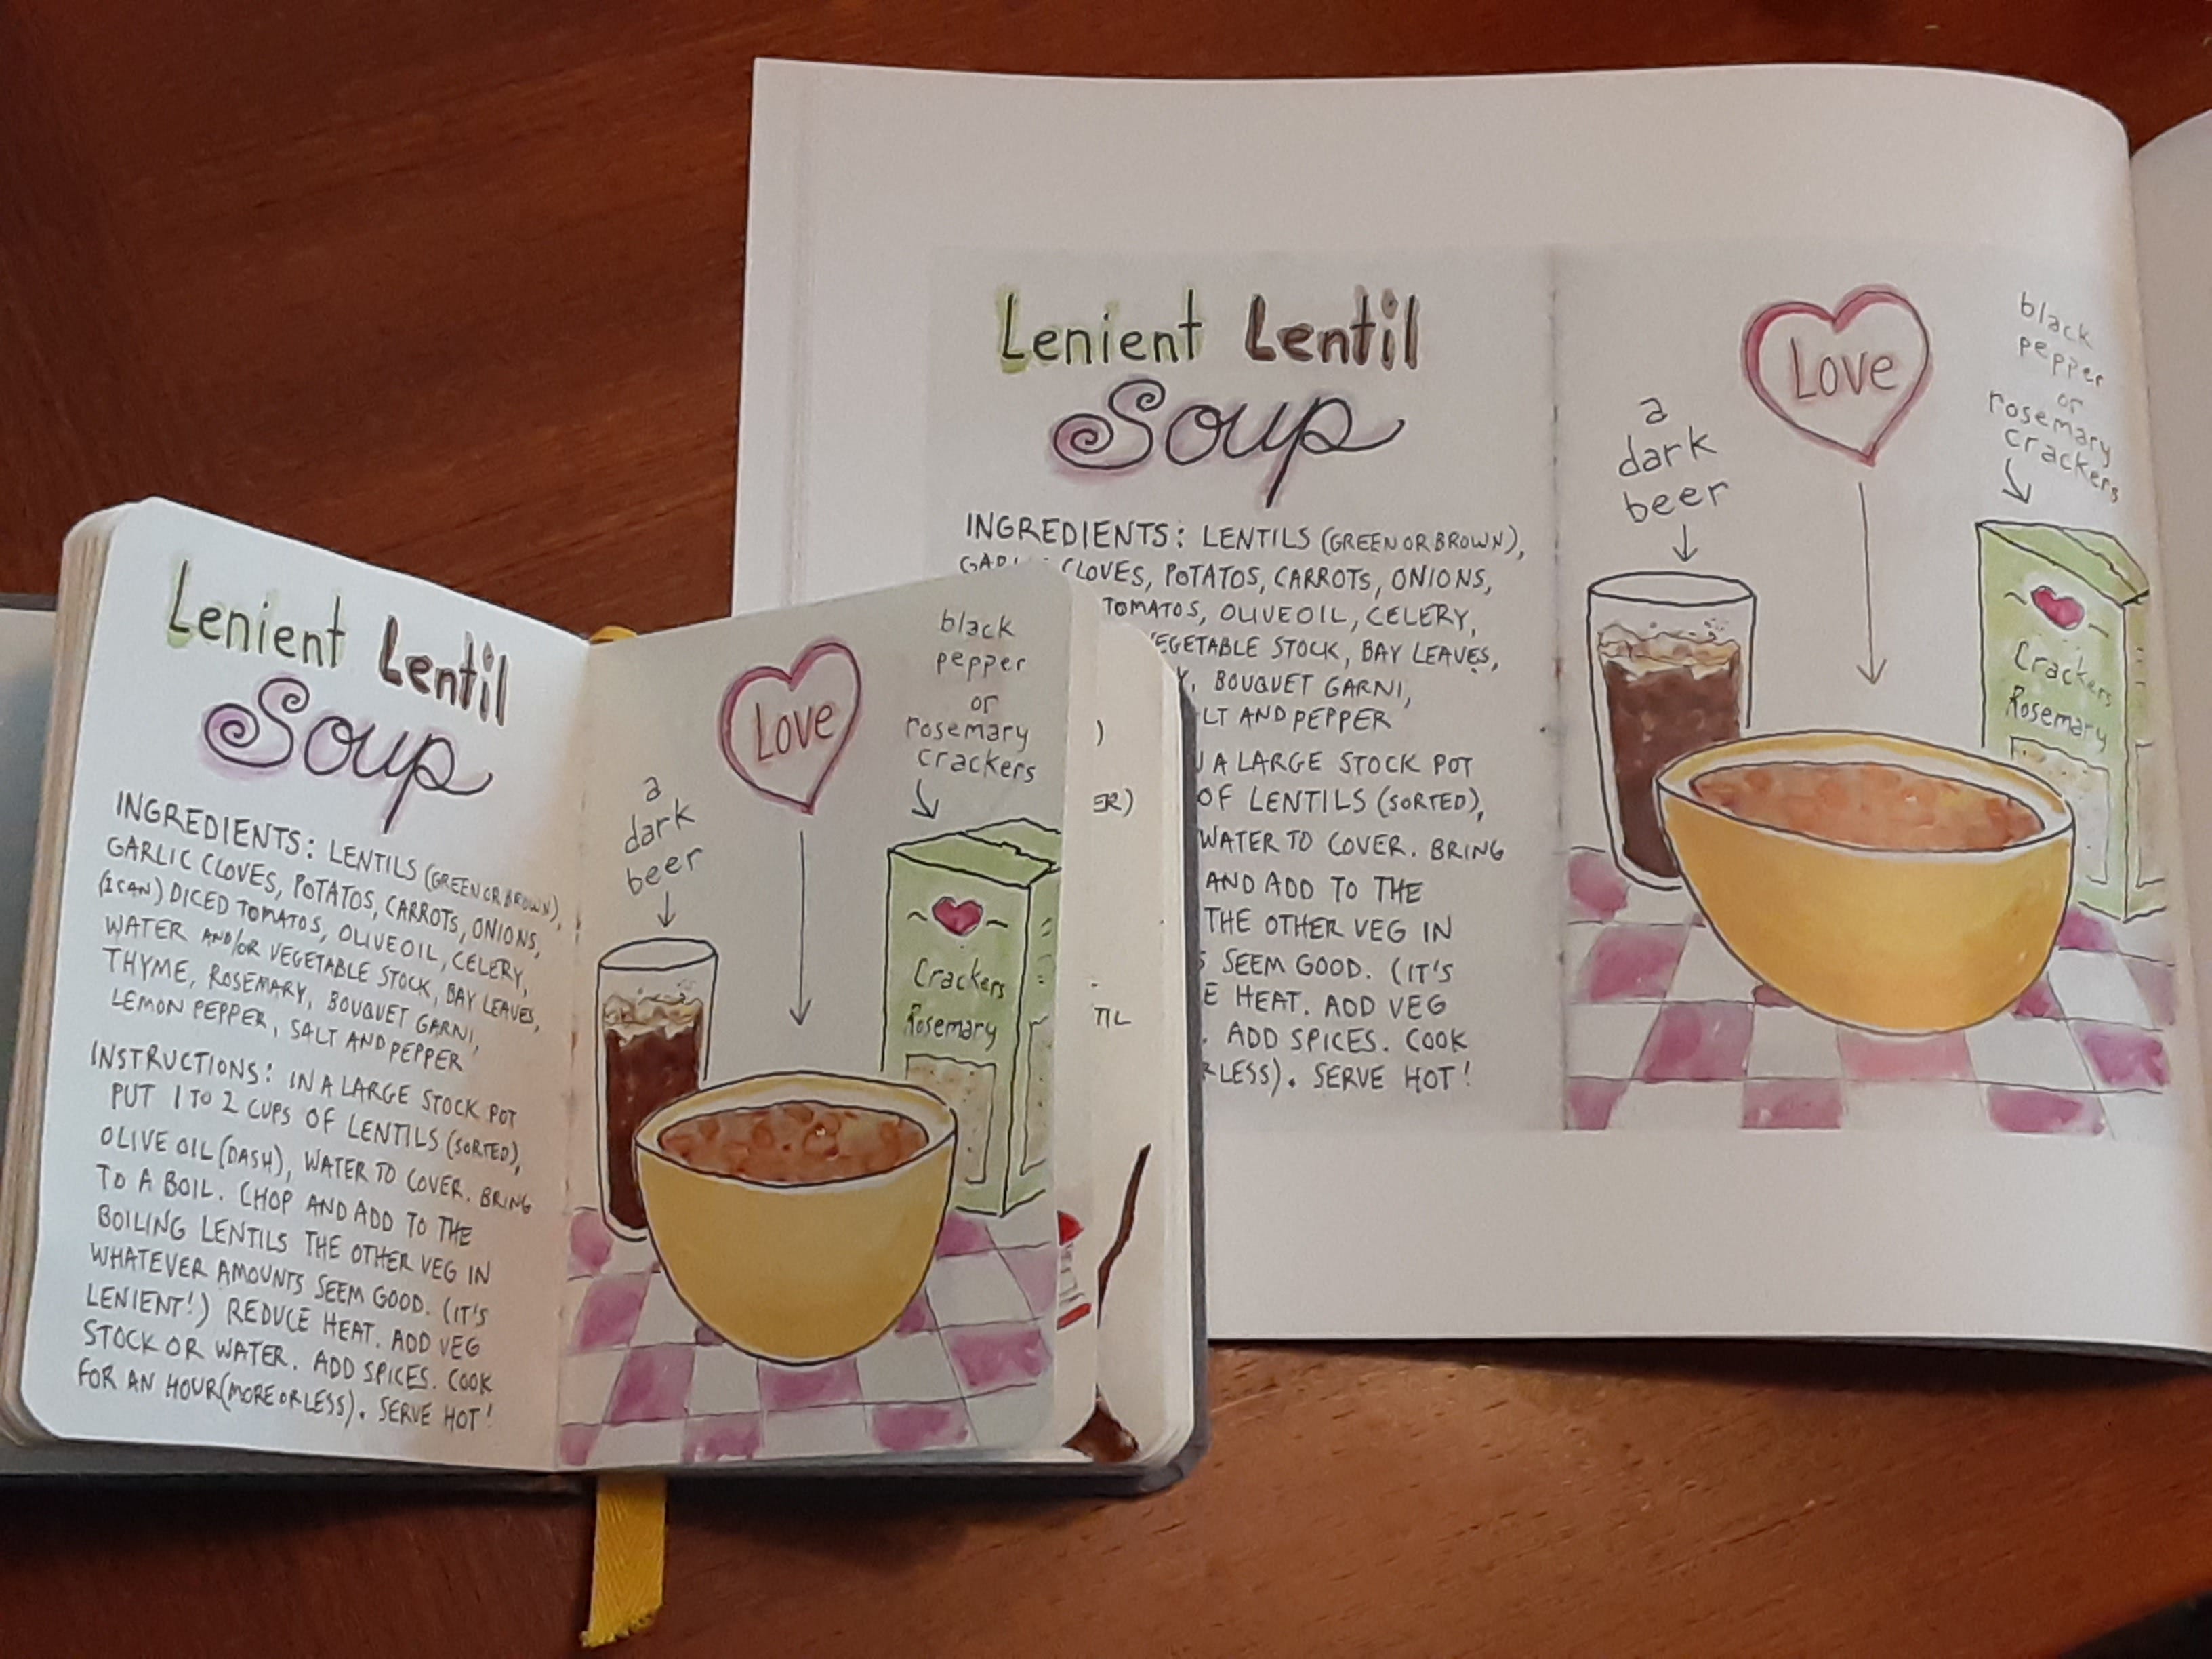 Lenient Lentil
Soup
INGREDIENTS: LENTILS (GREEN OR BROWN),
GARLIC CLOVES, POTATOS, CARROTS, ONIONS,
(1 CAN) DICED TOMATOS, OLIVE OIL, CELERY,
WATER AND/OR VEGETABLE STOCK, BAY LEAVES,
THYME, ROSEMARY, BOUQUET GARNI,
LEMON PEPPER, SALT AND PEPPER
INSTRUCTIONS: IN A LARGE STOCK POT
PUT 1 TO 2 CUPS OF LENTILS (SORTED),
OLIVE OIL (DASH), WATER TO COVER. BRING
TO A BOIL. CHOP AND ADD TO THE
BOILING LENTILS THE OTHER VEG IN
WHATEVER AMOUNTS SEEM GOOD. (IT'S
LENIENT!) REDUCE HEAT. ADD VEG
STOCK OR WATER. ADD SPICES. COOK
FOR AN HOUR (MORE OR LESS). SERVE HOT!
a
dark
beer
Love
black
pepper
or
rosemary
crackers
Crackers
Rosemary
)
ER)
TIL
Lenient Lentil
Soup
INGREDIENTS: LENTILS (GREEN OR BROWN),
CLOVES, POTATOS, CARROTS, ONIONS,
TOMATOS, OLIVE OIL, CELERY,
VEGETABLE STOCK, BAY LEAVES,
Y, BOUQUET GARNI,
LT AND PEPPER
A LARGE STOCK POT
OF LENTILS (SORTED),
WATER TO COVER. BRING
AND ADD TO THE
THE OTHER VEG IN
S SEEM GOOD. (IT'S
E HEAT. ADD VEG
. ADD SPICES. COOK
R LESS). SERVE HOT!
a
dark
beer
Love
black
pepper
or
rosemary
crackers
Crackers
Rosemary